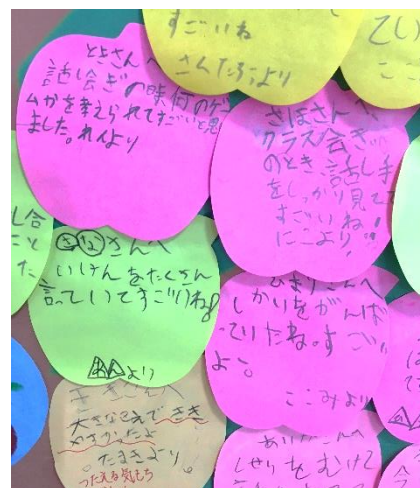 すごいね
さんたろうより
てい
ここ
ときさんへ
話し合きの時何のゲ
ムかを考えられてすごいと思
ました。れんより
さほさんへ
クラス会ぎ
のとき、話し手
をしっかり見て
すごいね!
にこより
し合
こと
た
さなさんへ
いけんをたくさん
言っていてすごいね!
あんより
さんへ
しかいをがんば
っていたね。すごい
よ。
ここみより
さんへ
大きなこえで
やすかったよ
たまきより。
つたえる気もち
さんへ
しせいをむけて